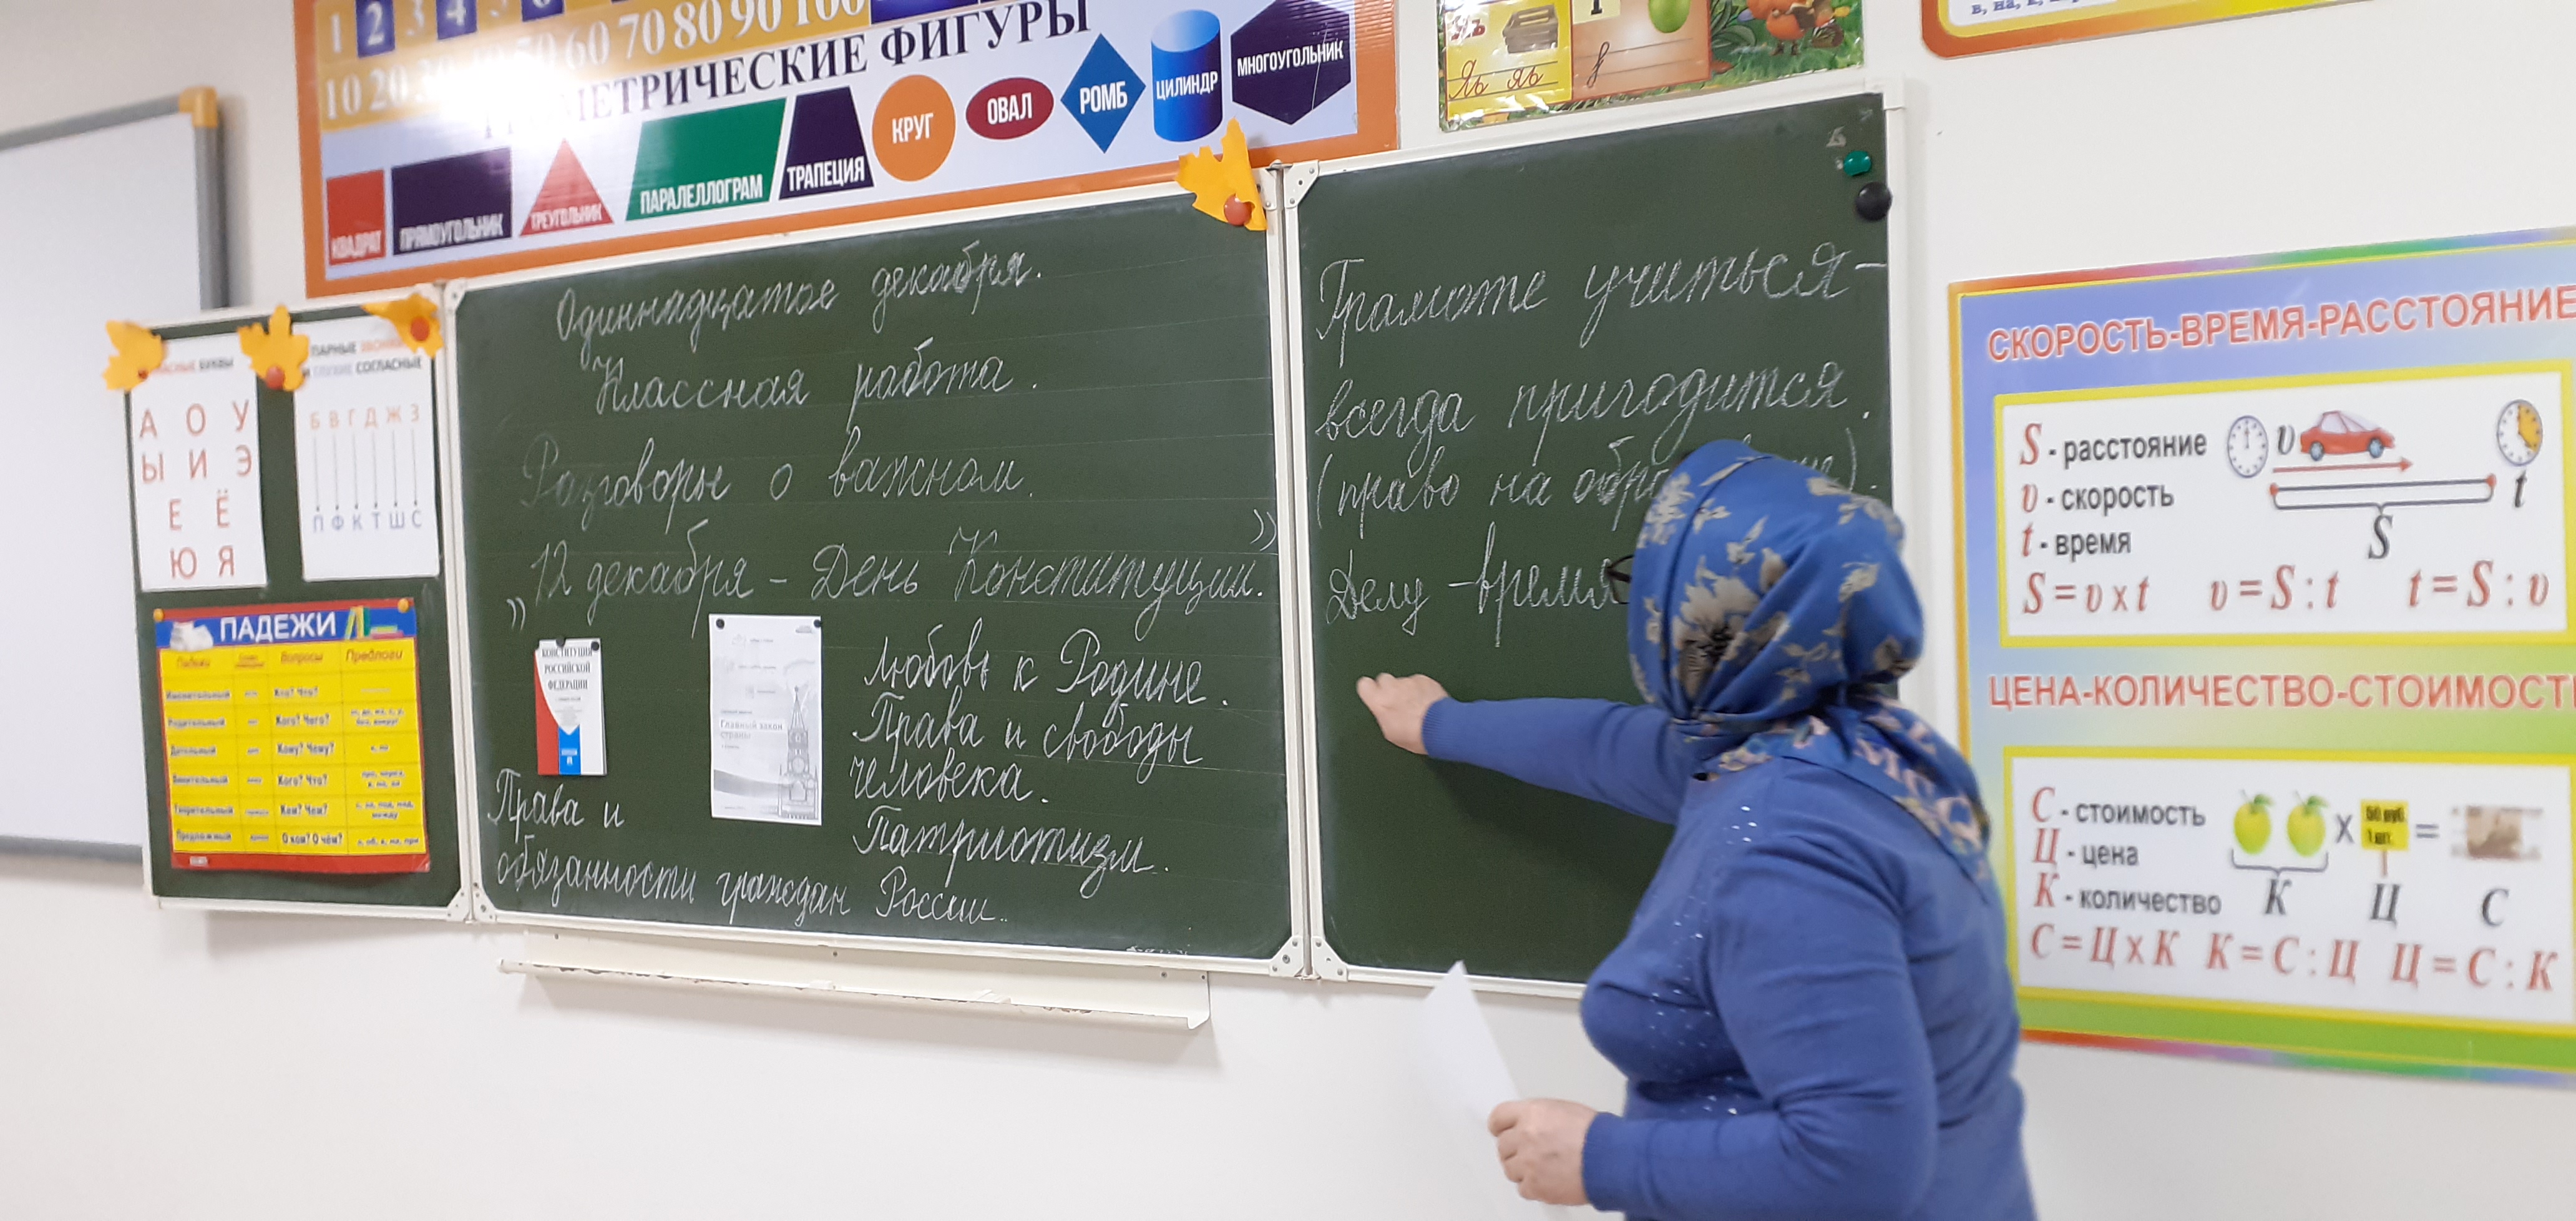 1 2 3 4 5 6
10 20 30 40 50 60 70 80 90 100
ГЕОМЕТРИЧЕСКИЕ ФИГУРЫ
КВАДРАТ
ПРЯМОУГОЛЬНИК
ТРЕУГОЛЬНИК
ПАРАЛЕЛЛОГРАМ
ТРАПЕЦИЯ
КРУГ
ОВАЛ
РОМБ
ЦИЛИНДР
МНОГОУГОЛЬНИК
Яь яь
БУКВЫ
А О У
Ы И Э
Е Ё
Ю Я
ПАРНЫЕ
И ГЛУХИЕ СОГЛАСНЫЕ
Б В Г Д Ж З
П Ф К Т Ш С
ПАДЕЖИ
Падежи Вопросы Предлоги
Именительный Кто? Что?
Родительный Кого? Чего?
Дательный Кому? Чему?
Винительный Кого? Что?
Творительный Кем? Чем?
Предложный О ком? О чём?
Одиннадцатое декабря.
Классная работа.
Разговоры о важном.
„12 декабря – День Конституции."
КОНСТИТУЦИЯ
РОССИЙСКОЙ
ФЕДЕРАЦИИ
Главный закон
страны
Любовь к Родине.
Права и свободы
человека.
Патриотизм.
Права и
обязанности граждан России.
Грамоте учиться –
всегда пригодится.
(право на
Делу – время
СКОРОСТЬ-ВРЕМЯ-РАССТОЯНИЕ
S - расстояние
υ - скорость
t - время
υ
t
S
S = υ x t υ = S : t t = S : υ
ЦЕНА-КОЛИЧЕСТВО-СТОИМОСТЬ
С - стоимость
Ц - цена
К - количество
x 50 руб. 1 шт. =
К Ц С
С = Ц x К К = С : Ц Ц = С : К